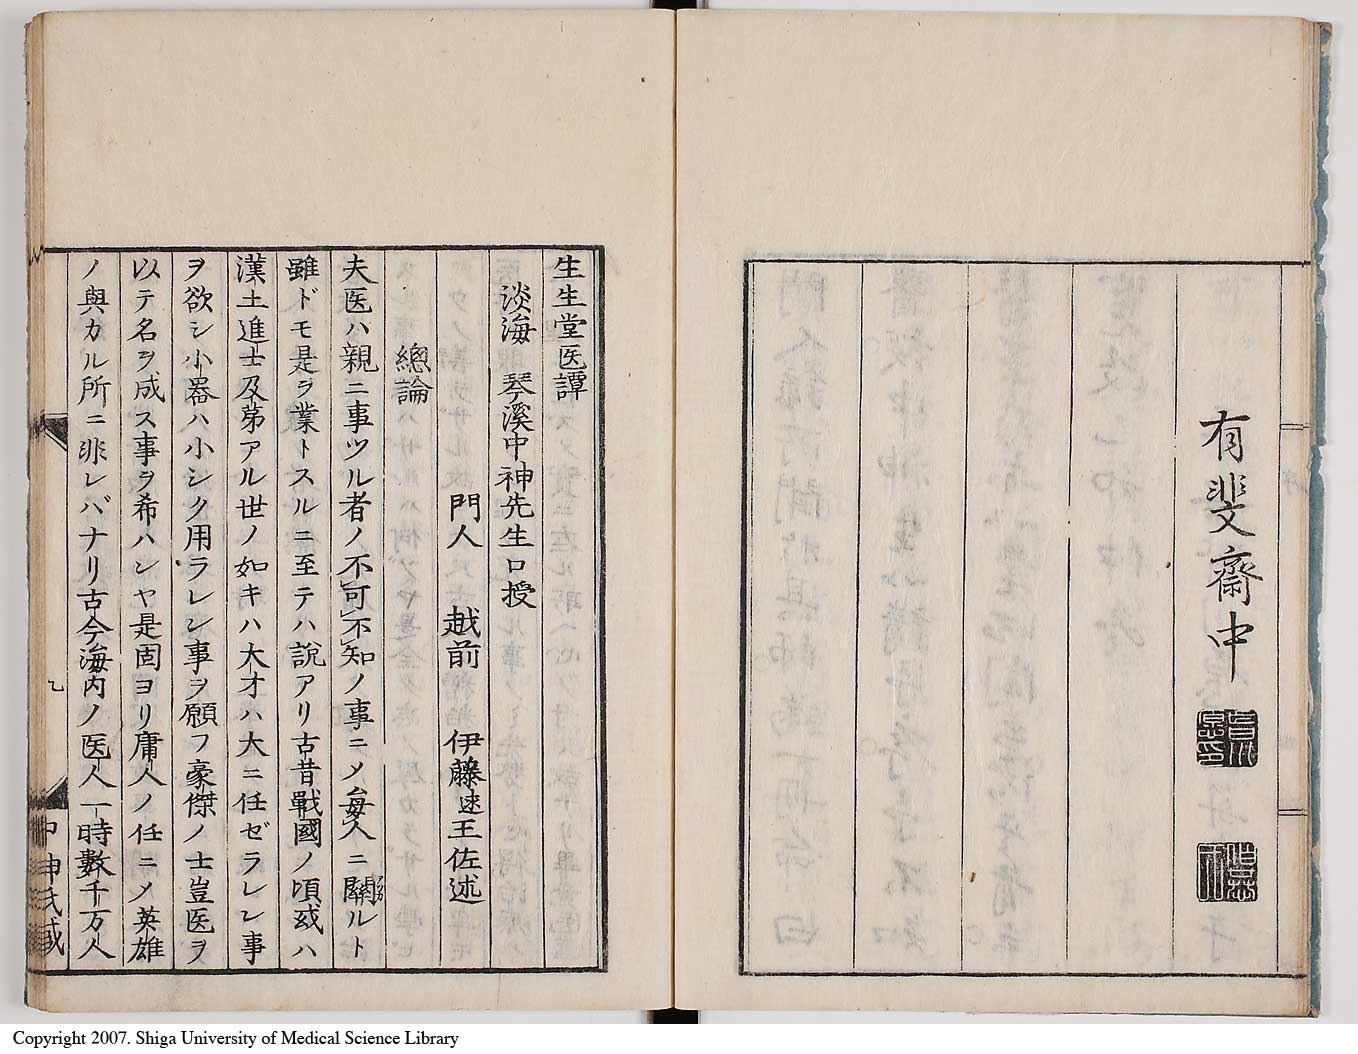 有斐齋中
生生堂医譚
淡海　琴溪中神先生口授
門人　越前　伊藤逑王佐述
總論
夫医ハ親ニ事ツル者ノ不可不知ノ事ニメ毎人ニ關ルト
雖ドモ是ヲ業トスルニ至テハ說アリ古昔戰國ノ頃或ハ
漢土進士及第アル世ノ如キハ大才ハ大ニ任ゼラレン事
ヲ欲シ小器ハ小シク用ラレン事ヲ願フ豪傑ノ士豈医ヲ
以テ名ヲ成ス事ヲ希ハンヤ是固ヨリ庸人ノ任ニメ英雄
ノ與カル所ニ非レバナリ古今海内ノ医人一時數千万人
中神氏藏
Copyright 2007. Shiga University of Medical Science Library